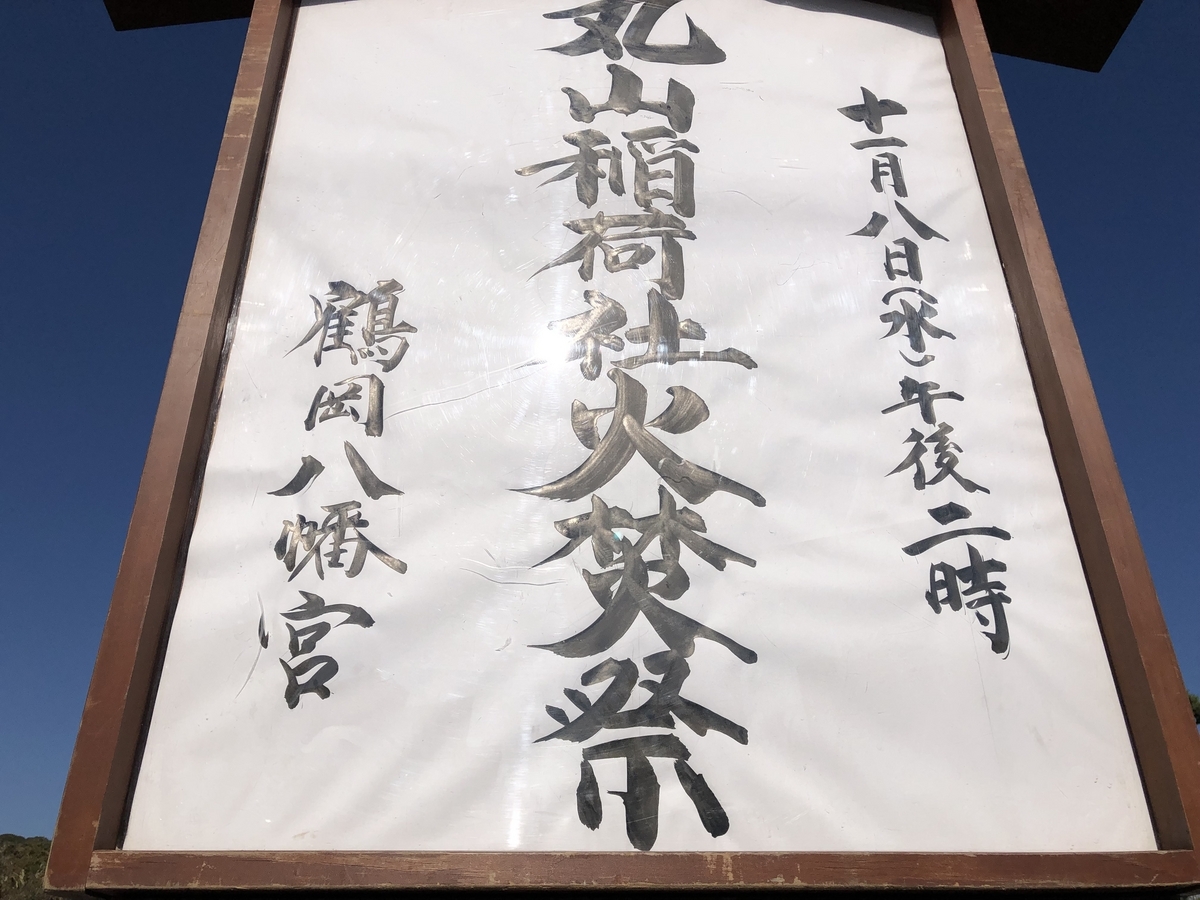 十一月八日(水)午後二時
丸山稲荷社火焚祭
鶴岡八幡宮